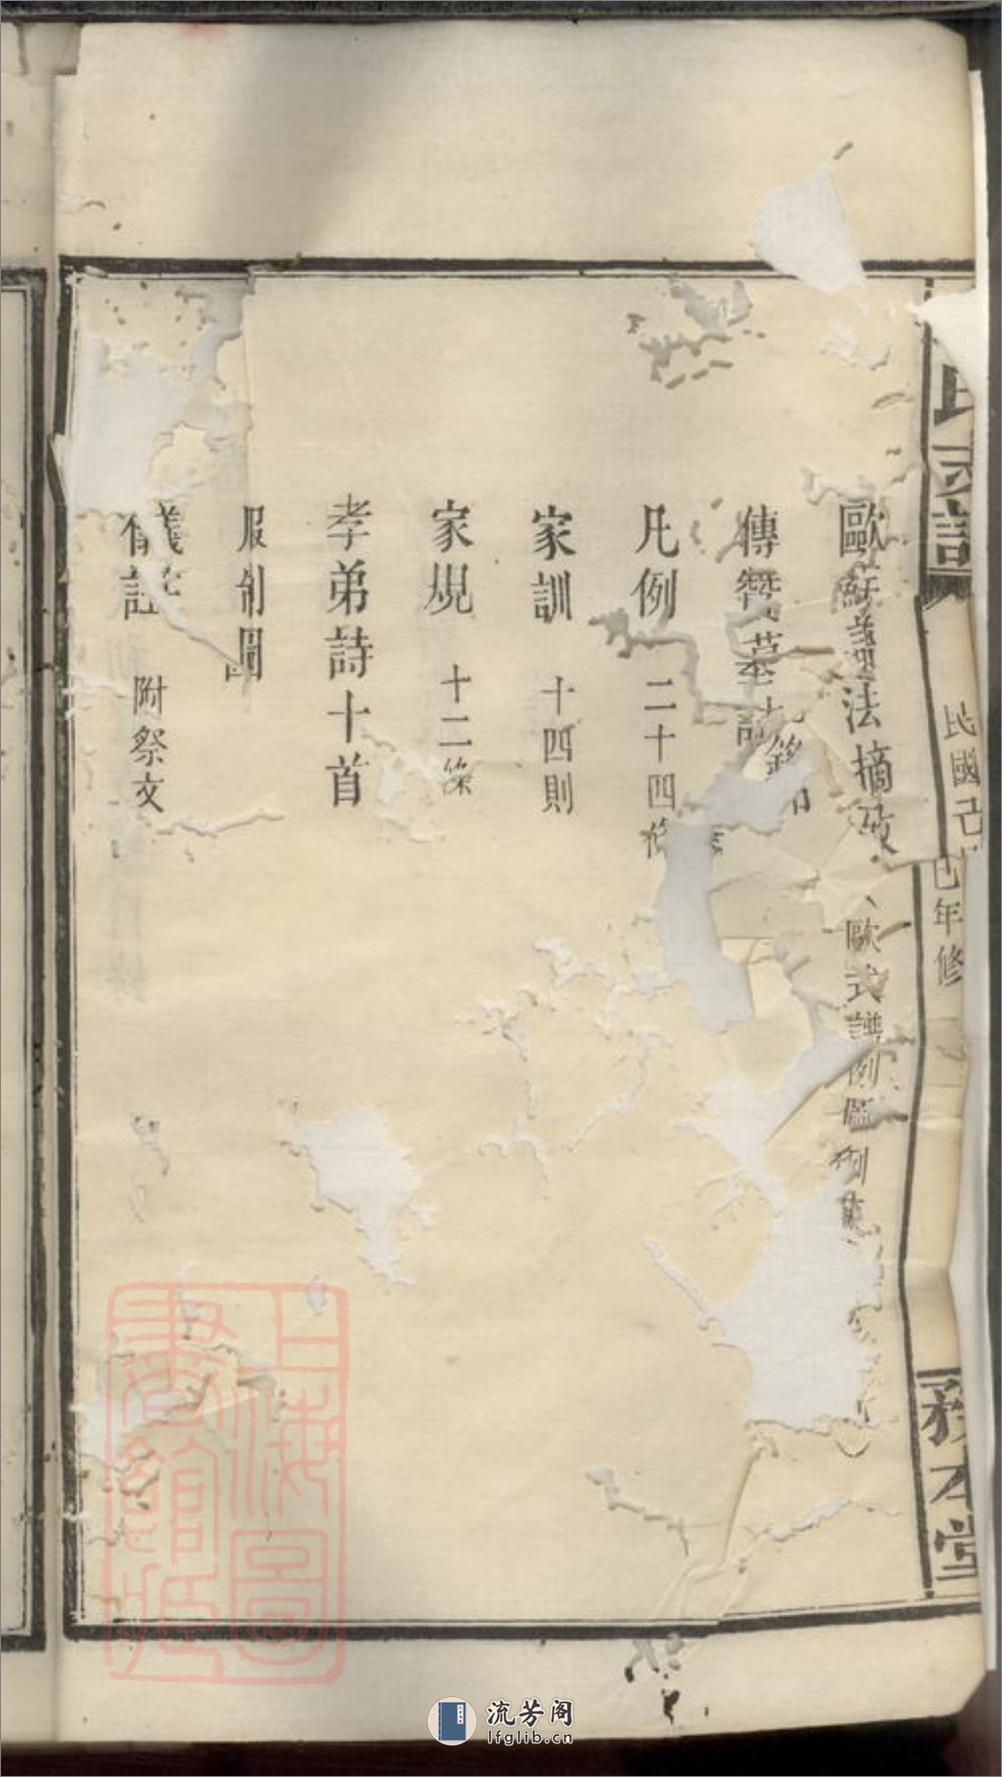 民國己巳年修
務本堂
歐蘇譜法摘攷 歐式譜例
傳贊墓誌銘
凡例 二十四條
家訓 十四則
家規 十二條
孝弟詩十首
服制圖
儀註 附祭文
上海圖書館藏
流芳阁
lfglib.cn